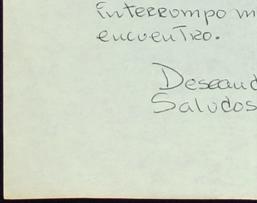 Interrumpo m
encuentro.
Deseand
Saludos